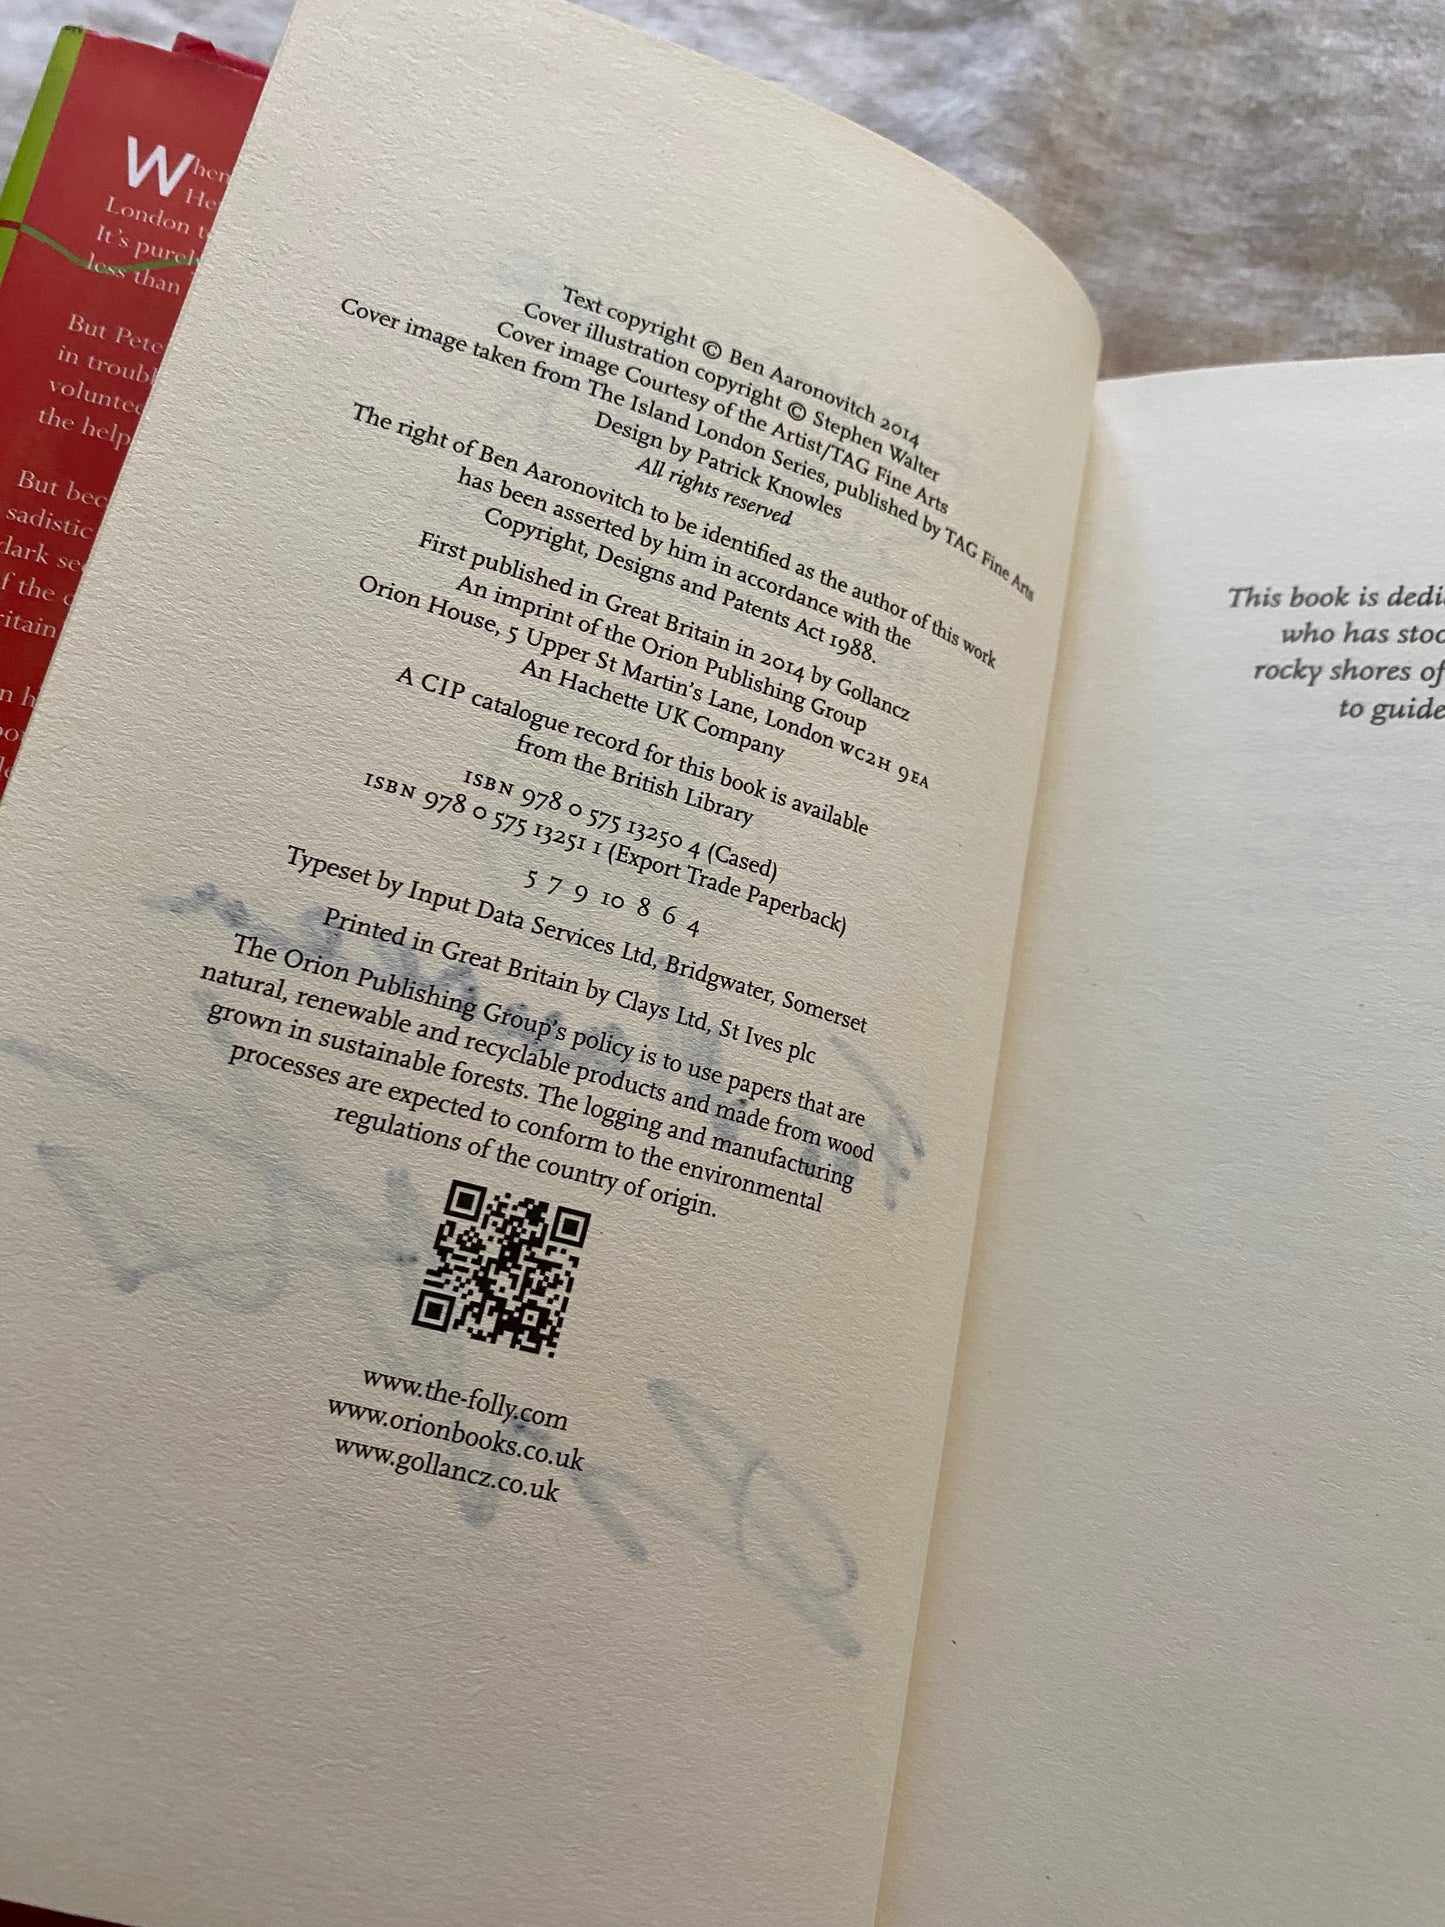 When
He
London t
It's purel
less than
But Pete
in troubl
voluntee
the help
But bec
sadistic
dark se
f the
ritain
n h
Text copyright © Ben Aaronovitch 2014
Cover illustration copyright © Stephen Walter
Cover image Courtesy of the Artist/TAG Fine Arts
Cover image taken from The Island London Series, published by TAG Fine Arts
Design by Patrick Knowles
All rights reserved
The right of Ben Aaronovitch to be identified as the author of this work
has been asserted by him in accordance with the
Copyright, Designs and Patents Act 1988.
First published in Great Britain in 2014 by Gollancz
An imprint of the Orion Publishing Group
Orion House, 5 Upper St Martin's Lane, London WC2H 9EA
An Hachette UK Company
A CIP catalogue record for this book is available
from the British Library
ISBN 978 0 575 13250 4 (Cased)
ISBN 978 0 575 13251 1 (Export Trade Paperback)
5 7 9 10 8 6 4
Typeset by Input Data Services Ltd, Bridgwater, Somerset
Printed in Great Britain by Clays Ltd, St Ives plc
The Orion Publishing Group's policy is to use papers that are
natural, renewable and recyclable products and made from wood
grown in sustainable forests. The logging and manufacturing
processes are expected to conform to the environmental
regulations of the country of origin.
www.the-folly.com
www.orionbooks.co.uk
www.gollancz.co.uk
This book is dedi
who has stoo
rocky shores of
to guide